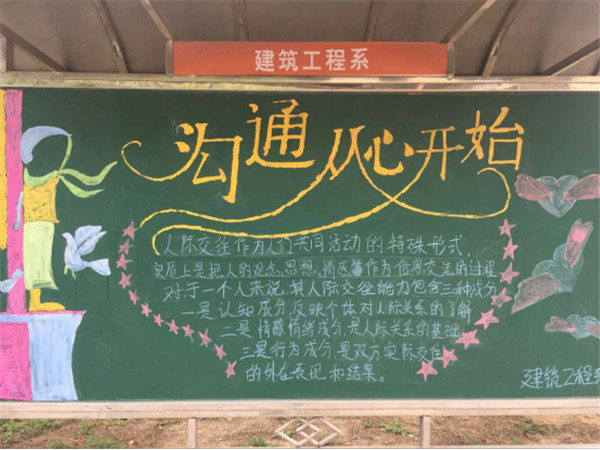 建筑工程系
沟通从心开始
人际交往作为人们共同活动的特殊形式,
实质上是把人的观念,思想,情感等作为信息交流的过程
对于一个人来说,其人际交往能力包含三种成分
一是认知成分,反映个体对人际关系的了解
二是情感情绪成分,是人际关系的基础
三是行为成分,是双方实际交往
的外在表现和结果。
建筑工程系